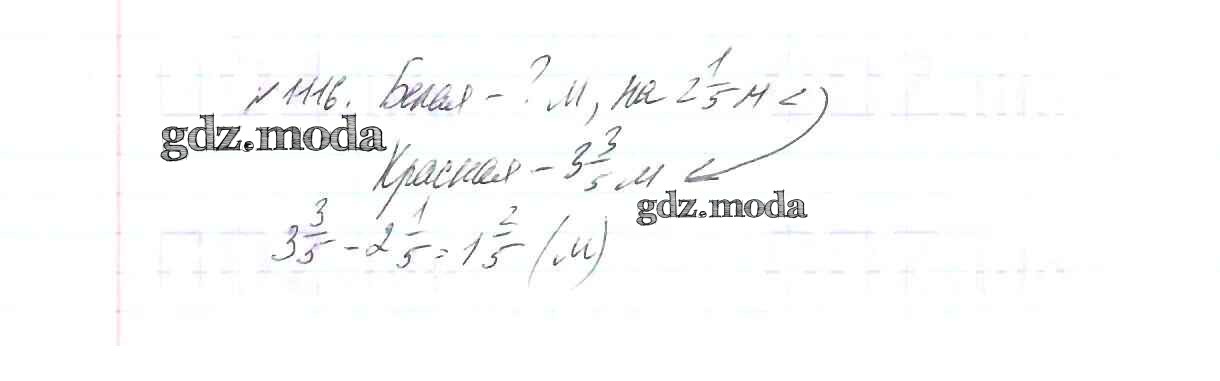 №1116. Белая - ? м, на 2 1/5 м <
gdz.moda
Красная - 3 3/5 м
gdz.moda
3 3/5 - 2 1/5 = 1 2/5 (м)